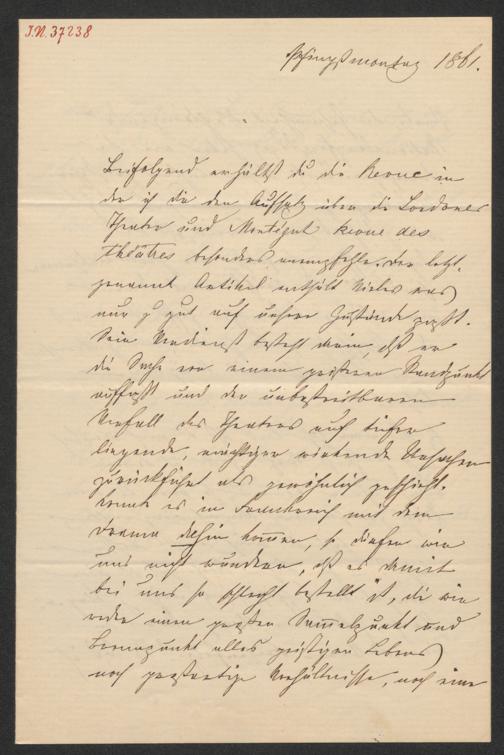 I.N. 37238
Pfingstmontag 1861.
Beifolgend erhältst du die Revue in
der ich dir den Aufsatz über die Londoner
Theater und Montégut Revue des
théâtres besonders anempfehle. Der letzt-
genannte Artikel enthält Vieles was
nur zu gut auf unsere Zustände paßt.
Sein Verdienst besteht darin, daß er
die Sache von einem größeren Standpunkt
auffaßt und den unbestreitbaren
Verfall des Theaters auf tiefer
liegende, mächtiger wirkende Ursachen
zurückführt als gewöhnlich geschieht.
Konnte es in Frankreich mit dem
Drama dahin kommen, so dürfen wir
uns nicht wundern, daß es damit
bei uns so schlecht bestellt ist, die wir
weder einen großen Sammelpunkt und
Brennpunkt alles geistigen Lebens
noch großartige Verhältnisse, noch eine